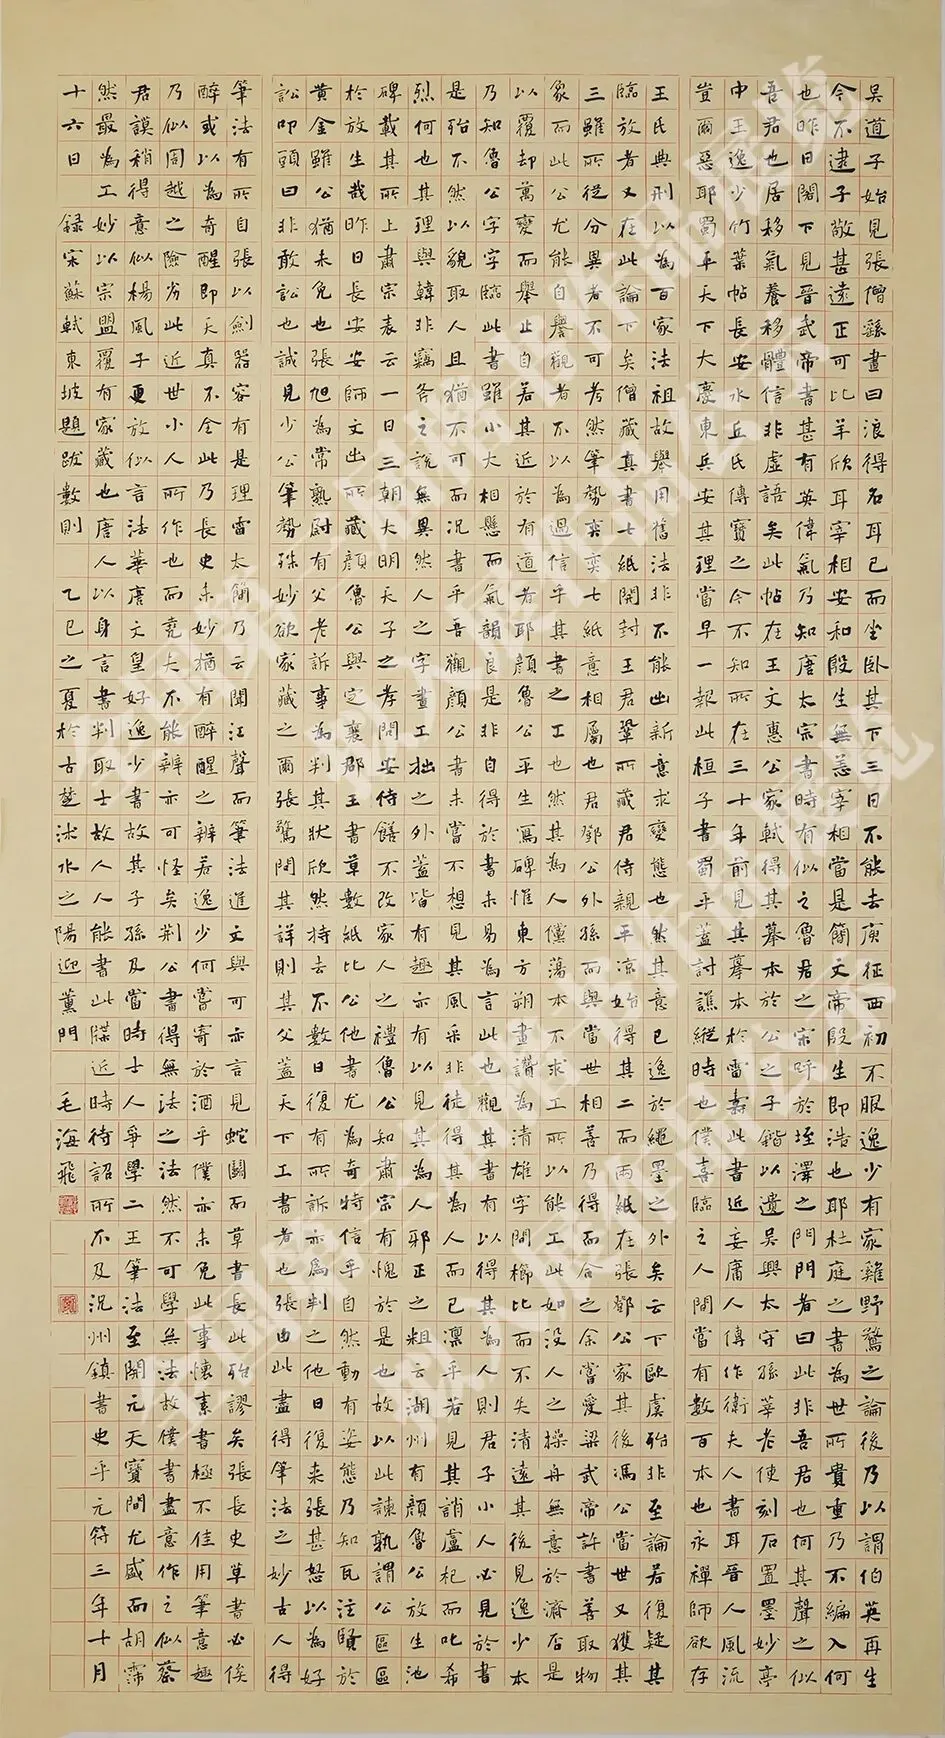 吴道子始見張僧繇畫曰浪得名耳已而坐卧其下三日不能去庾征西初不服逸少有家雞野鶩之論後乃以謂伯英再生
今不逮子敬甚遠正可比羊欣耳宰相安和殷生無恙宰相當是簡文帝殷生即浩也耶杜庭之書為世所貴重乃不編入何
也昨日閣下見晉武帝書甚有英偉氣乃知唐太宗書時有似之魯君之宋呼於垤澤之門門者曰此非吾君也何其聲之似
吾君也居移氣養移體信非虛語矣此帖在王文惠公家軾得其摹本於公之子鍇以遺吳興太守孫莘老使刻石置墨妙亭
中王逸少竹葉帖長安水丘氏傳寶之今不知所在三十年前見其摹本於雷壽此書近妄庸人傳作衛夫人書耳晉人風流
豈爾惡耶蜀平天下大慶東兵安其理當早一報此桓子書蜀平蓋討譙縱時也僕喜臨之人間當有數百本也永禪師欲存
王氏典刑以為百家法祖故舉用舊法非不能出新意求變態也然其意已逸於繩墨之外矣云下歐虞殆非至論若復疑其
臨放者又在此論下矣僧藏真書七紙開封王君鞏所藏君侍親平涼始得其二而兩紙在張鄧公家其後馮公當世又獲其
三雖所從分異者不可考然筆勢奕奕七紙意相屬也君鄧公外孫而與當世相善乃得而合之余嘗愛梁武帝評書善取物
象而此公尤能自譽觀者不以為過信乎其書之工也然其為人儻蕩本不求工所以能工此如没人之操舟無意於濟否是
以覆却萬變而舉止自若其近於有道者耶顏魯公平生寫碑惟東方朔畫讚為清雄字間櫛比而不失清遠其後見逸少本
乃知魯公字字臨此書雖小大相懸而氣韻良是非自得於書未易為言此也觀其書有以得其為人則君子小人必見於書
是殆不然以貌取人且猶不可而況書乎吾觀顏公書未嘗不想見其風采非徒得其為人而已凜乎若見其誚盧杞而叱希
烈何也其理與韓非竊斧之說無異然人之字畫工拙之外蓋皆有趣亦有以見其為人邪正之粗云湖州有顏魯公放生池
碑載其所上肅宗表云一日三朝大明天子之孝問安侍膳不改家人之禮魯公知肅宗有愧於是也故以此諫孰謂公區區
於放生哉昨日長安師文出所藏顏魯公與定襄郡王書草數紙比公他書尤為奇特信乎自然動有姿態乃知瓦注賢於
黃金雖公猶未免也張旭為常熟尉有父老訴事為判其狀欣然持去不數日復有所訴亦為判之他日復来張甚怒以為好
訟叩頭曰非敢訟也誠見少公筆勢殊妙欲家藏之爾張驚問其詳則其父蓋天下工書者也張由此盡得筆法之妙古人得
筆法有所自張以劍器容有是理雷太簡乃云聞江聲而筆法進文與可亦言見蛇鬬而草書長此殆謬矣張長史草書必俟
醉或以為奇醒即天真不全此乃長史未妙猶有醉醒之辨若逸少何嘗寄於酒乎僕亦未免此事懷素書極不佳用筆意趣
乃似周越之險劣此近世小人所作也而堯夫不能辨亦可怪矣荆公書得無法之法然不可學無法故僕書盡意作之似蔡
君謨稍得意似楊風子更放似言法華唐文皇好逸少書故其子孫及當時士人爭學二王筆法至開元天寶間尤盛而胡霈
然最為工妙以宗盟覆有家藏也唐人以身言書判取士故人人能書此牒近時待詔所不及況州鎮書史乎元符三年十月
十六日 録宋蘇軾東坡題跋數則 乙巳之夏於古楚沭水之陽迎薰門 毛海飛